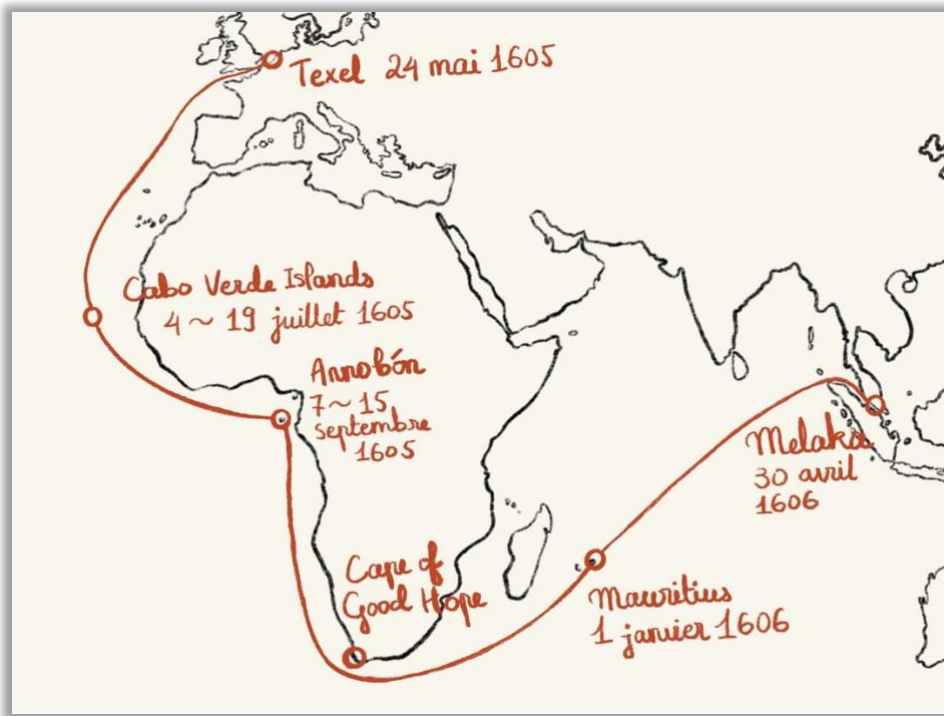 Texel 24 mai 1605
Cabo Verde Islands
4 ~ 19 juillet 1605
Annobón
7 ~ 15
septembre
1605
Cape of
Good Hope
Mauritius
1 janvier 1606
Melaka
30 avril
1606